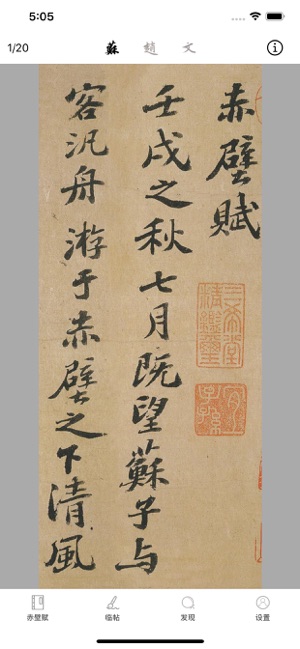 5:05
1/20
蘇 趙 文
赤壁賦
壬戌之秋七月既望蘇子与
客汎舟游于赤壁之下清風
三希堂
精鑑璽
宜子孫
赤壁赋 临帖 发现 设置